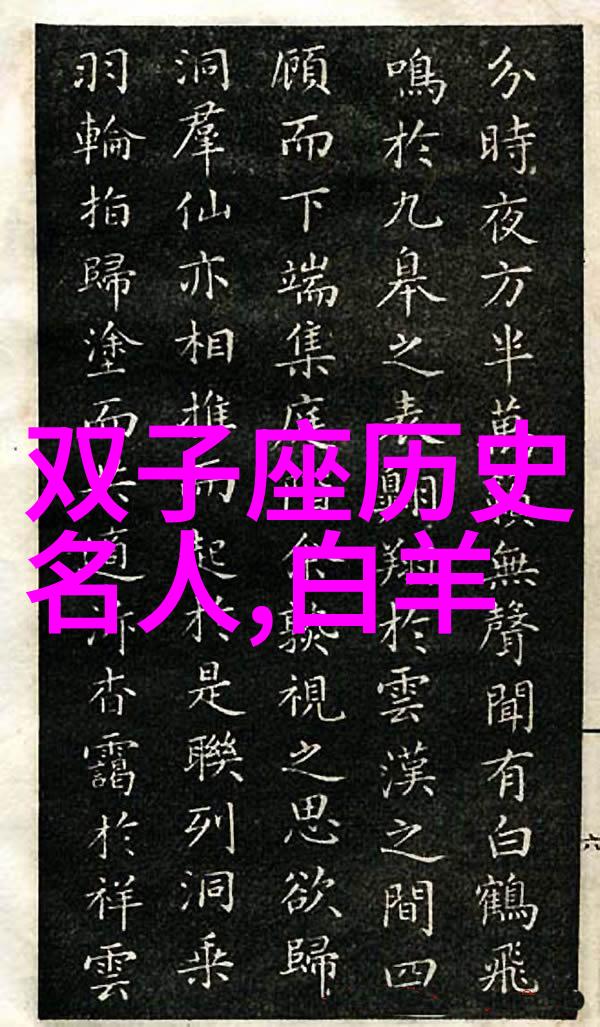 双子座历史
名人,白羊
分時夜方半萬無聲聞有白鶴飛
鳴於九皋之表翔於雲漢之間四
顧而下端集庭視之思欲歸
洞羣仙亦相推而起於是聯列洞乘
羽輪拍歸塗而杳靄於祥雲
六